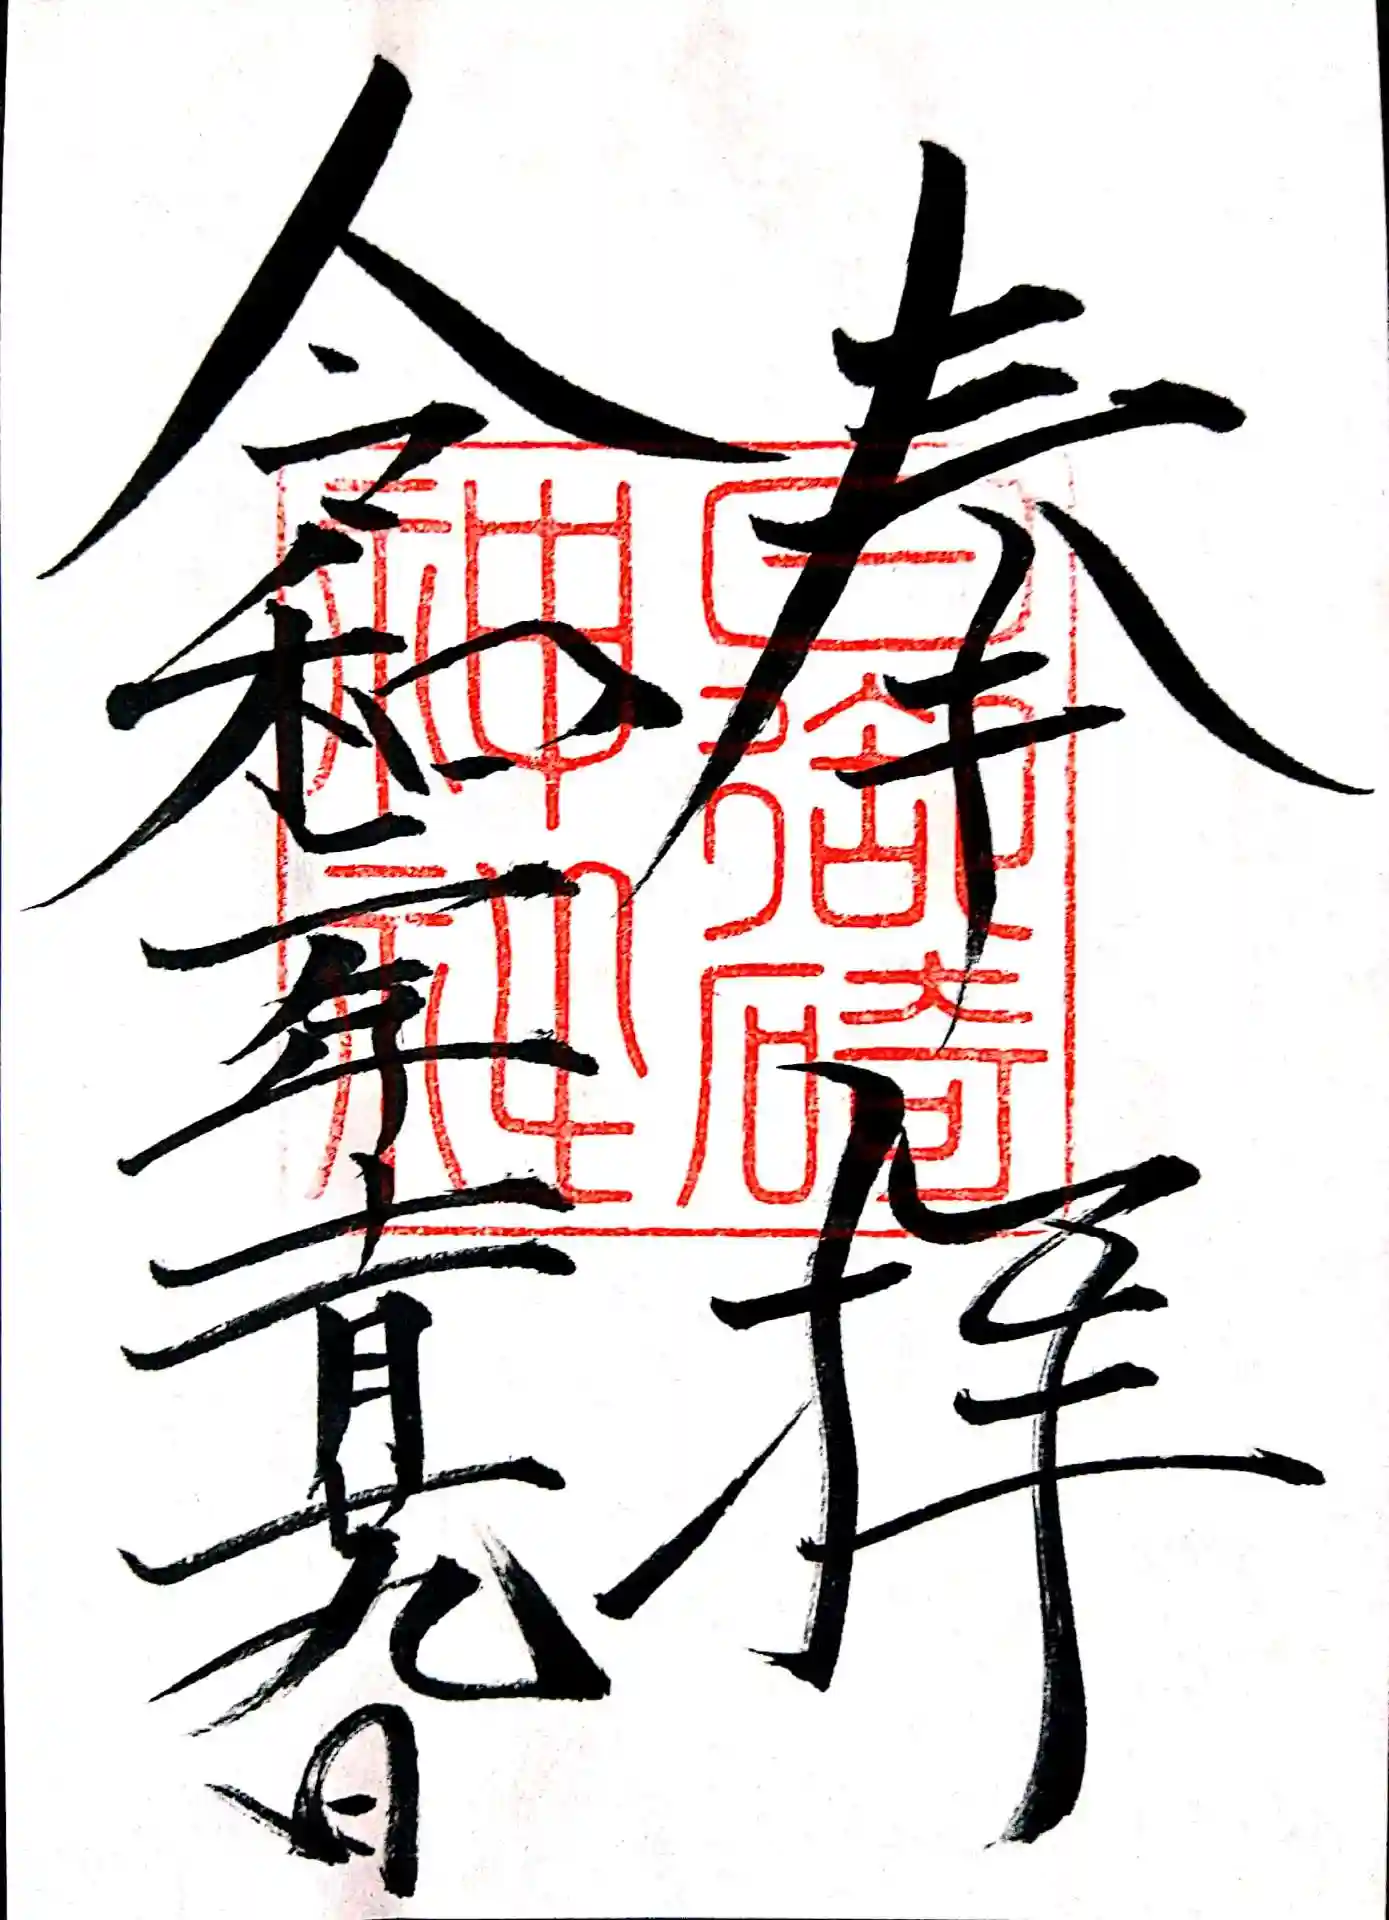 奉拝
日御碕
神社
令和二年十一月十九日